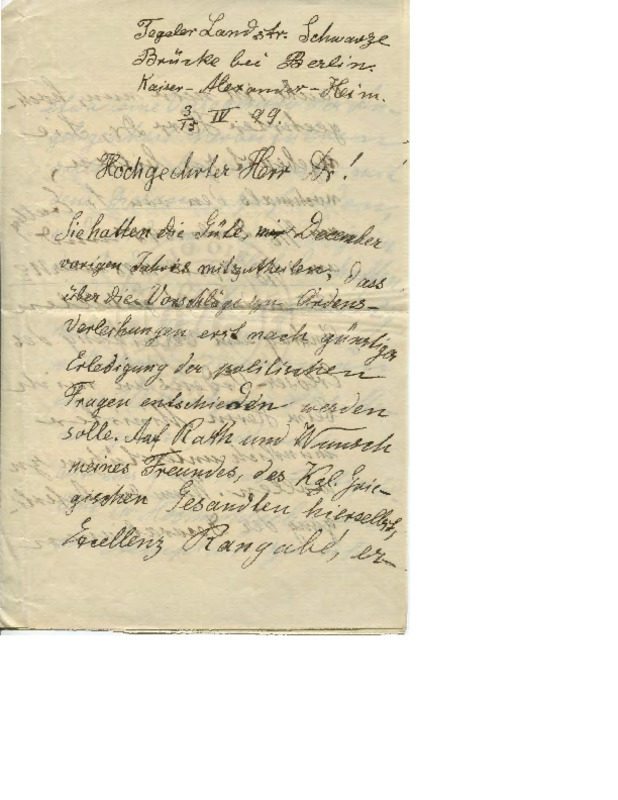 Tegeler Landstr. Schwarze
Brücke bei Berlin.
Kaiser-Alexander-Heim.
3/15 IV. 99.
Hochgeehrter Herr Dr!
Sie hatten die Güte, mir December
vorigen Jahres mitzutheilen, dass
über die Vorschläge zu Ordens-
Verleihungen erst nach günstiger
Erledigung der politischen
Fragen entschieden werden
solle. Auf Rath und Wunsch
meines Freundes, des Kgl. Grie-
chischen Gesandten hierselbst,
Excellenz Rangabé, er-